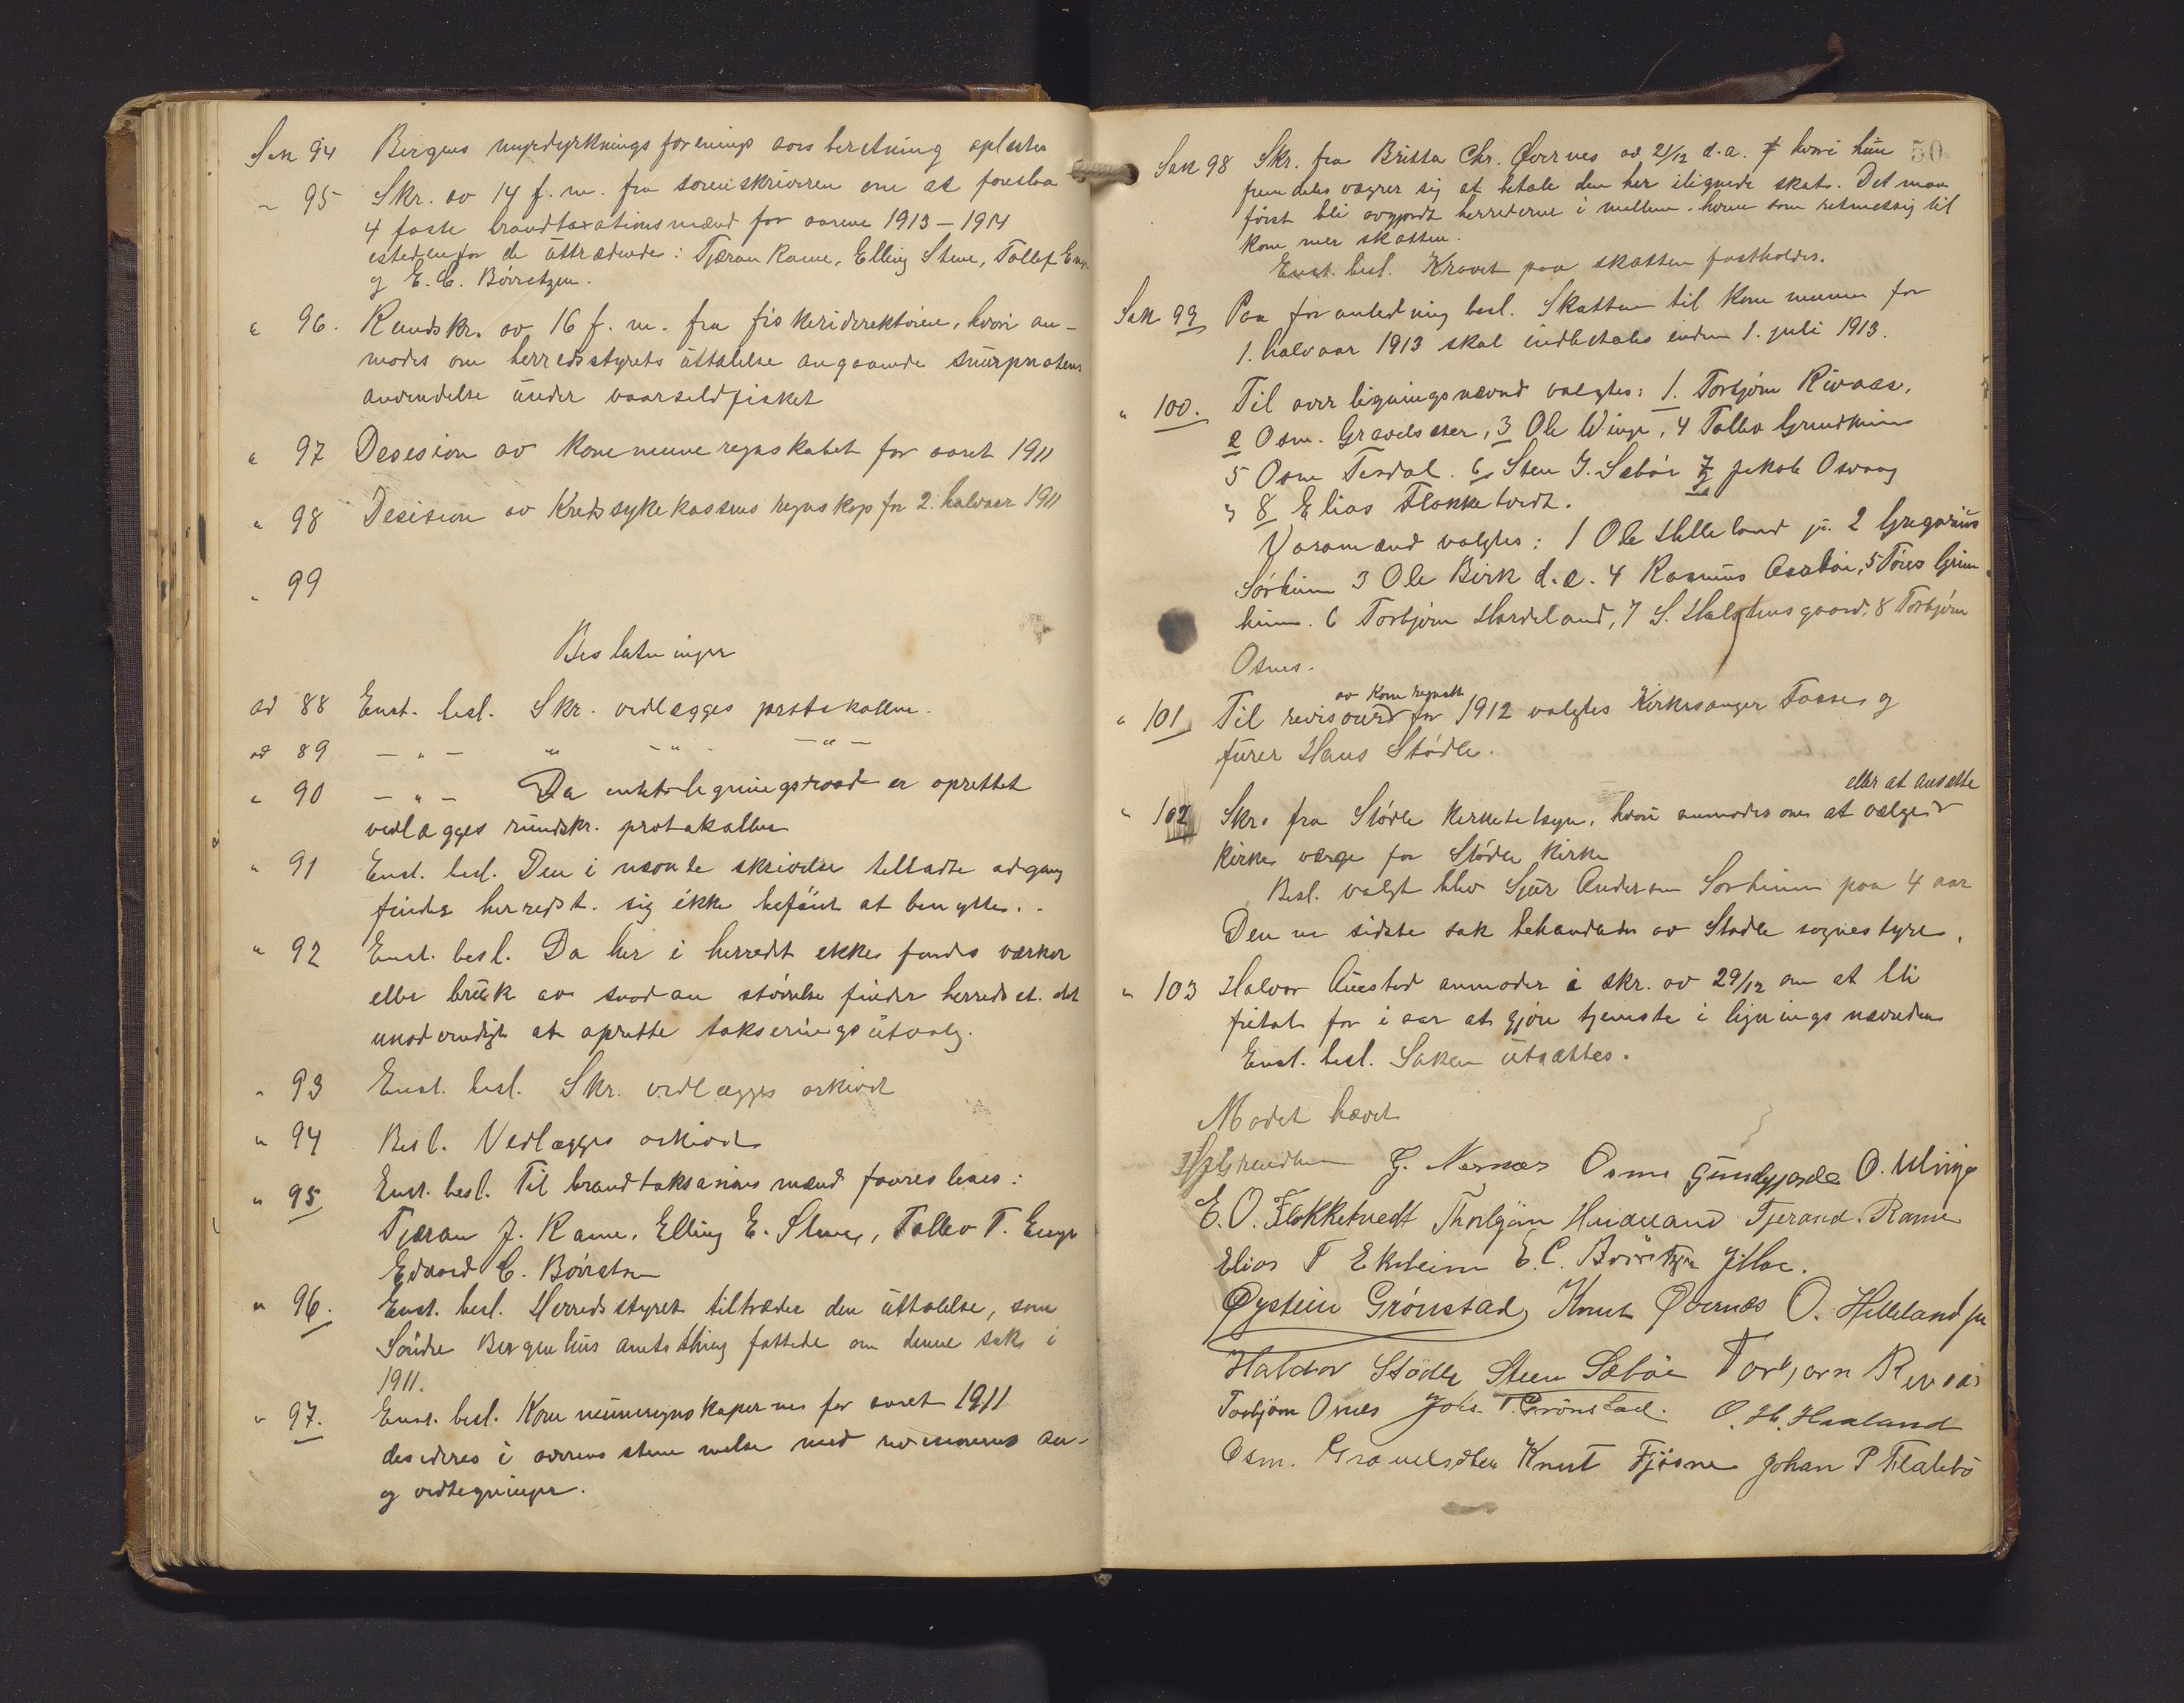 Sak 94 Bergens myrdyrkningsforenings aarsberetning oplæstes
" 95 Skr. av 14 f. m. fra sorenskriveren om at foreslaa
4 faste brandtaxationsmænd for aarene 1913 – 1917
istedenfor de uttrædende: Tjæran Rame, Elling Stene, Tollef Enge
og E. C. Börretzen.
" 96. Rundskr. av 16 f. m. fra fiskeridirektören, hvori an-
modes om herredsstyrets uttalelse angaaende snurpnotens
anvendelse under vaarsildfisket
" 97 Desision av kommuneregnskabet for aaret 1911
" 98 Desision av Kredssykekassens regnskap for 2. halvaar 1911
" 99
Beslutninger
ad 88 Enst. besl. Skr. vedlægges protokollen.
ad 89 – " – " – " – – " –
" 90 – " – Da intet ligningsraad er oprettet
vedlægges rundskr. protokollen
" 91 Enst. besl. Den i nævnte skrivelse tilladte adgang
finder herredst. sig ikke beföiet at benytte.
" 92 Enst. besl. Da her i herredet ikke findes værker
eller bruk av saadan störrelse finder herredsst. det
unödvendigt at oprette takseringsutvalg.
" 93 Enst. besl. Skr. vedlægges arkivet
" 94 Besl. Vedlægges arkivet
" 95 Enst. besl. Til brandtaksasions mænd foreslaaes:
Tjæran J. Rame, Elling E. Stene, Tollev T. Enge
Edvard C. Börretzen
" 96. Enst. besl. Herredsstyret tiltræder den uttalelse, som
Söndre Bergenhus amtsthing fattede om denne sak i
1911.
" 97. Enst. besl. Kommuneregnskaperne for aaret 1911
desideres i overensstemmelse med revisorernes an-
og vedtegninger.
50
Sak 98 Skr. fra Britta Chr. Övernes av 21/12 d. a. hvori hun
fremdeles vægrer sig at betale den her ilignede skat. Det maa
först bli avgjordt herrederne i mellem, hvem som retmessig til
kommer skatten.
Enst. besl. Kravet paa skatten fastholdes.
Sak 99 Paa foranledning besl. Skatten til kommunen for
1. halvaar 1913 skal indbetales inden 1. juli 1913.
" 100. Til overligningsnævnd valgtes: 1. Torbjörn Rivaas,
2 Osm. Gravelsæter, 3 Ole Winge, 4 Tollev Grindheim
5 Osm Tesdal. 6 Sten J. Sæböe 7 Jakob Osvaag
og 8 Elias Flokketvedt.
Varamænd valgtes: 1 Ole Helleland jr. 2 Gregorius
Sörheim 3 Ole Birk d. e. 4 Rasmus Aarböe, 5 Töres Grin
heim. 6 Torbjörn Hardeland, 7 S. Halstensgaard, 8 Torbjörn
Osnes.
av kom regnsk
" 101 Til revisorer for 1912 valgtes Kirkesanger Tosse og
furer Hans Stödle.
eller at ansette
" 102 Skr. fra Stödle kirketilsyn, hvori anmodes om at vælge
kirkeværge for Stödle kirke
Besl. valgt blev Sjur Andersen Sörheim paa 4 aar
Denne sidste sak behandledes av Stödle sognestyre.
" 103 Halvor Austad anmoder i skr. av 29/12 om at bli
fritat for i aar at gjöre tjeneste i ligningsnævnden
Enst. besl. Saken utsættes.
Mødet hævet
G. Nernæs Osm Gundegjerde O. Winge
E. O. Flokketvedt Thorbjörn Hardeland Tjerand. Rame
Elias T Ekrheim E. C. Börretzen
Øystein Grönstad, Knut Øvernæs O. Helleland jr
Haldor Stödle Steen Sæböe Torbjörn Rivaas
Torbjörn Osnes Johs. T. Grönstad. O. H. Haaland
Osm. Gravelsæter Knut Fjösne Johan P Flatebö